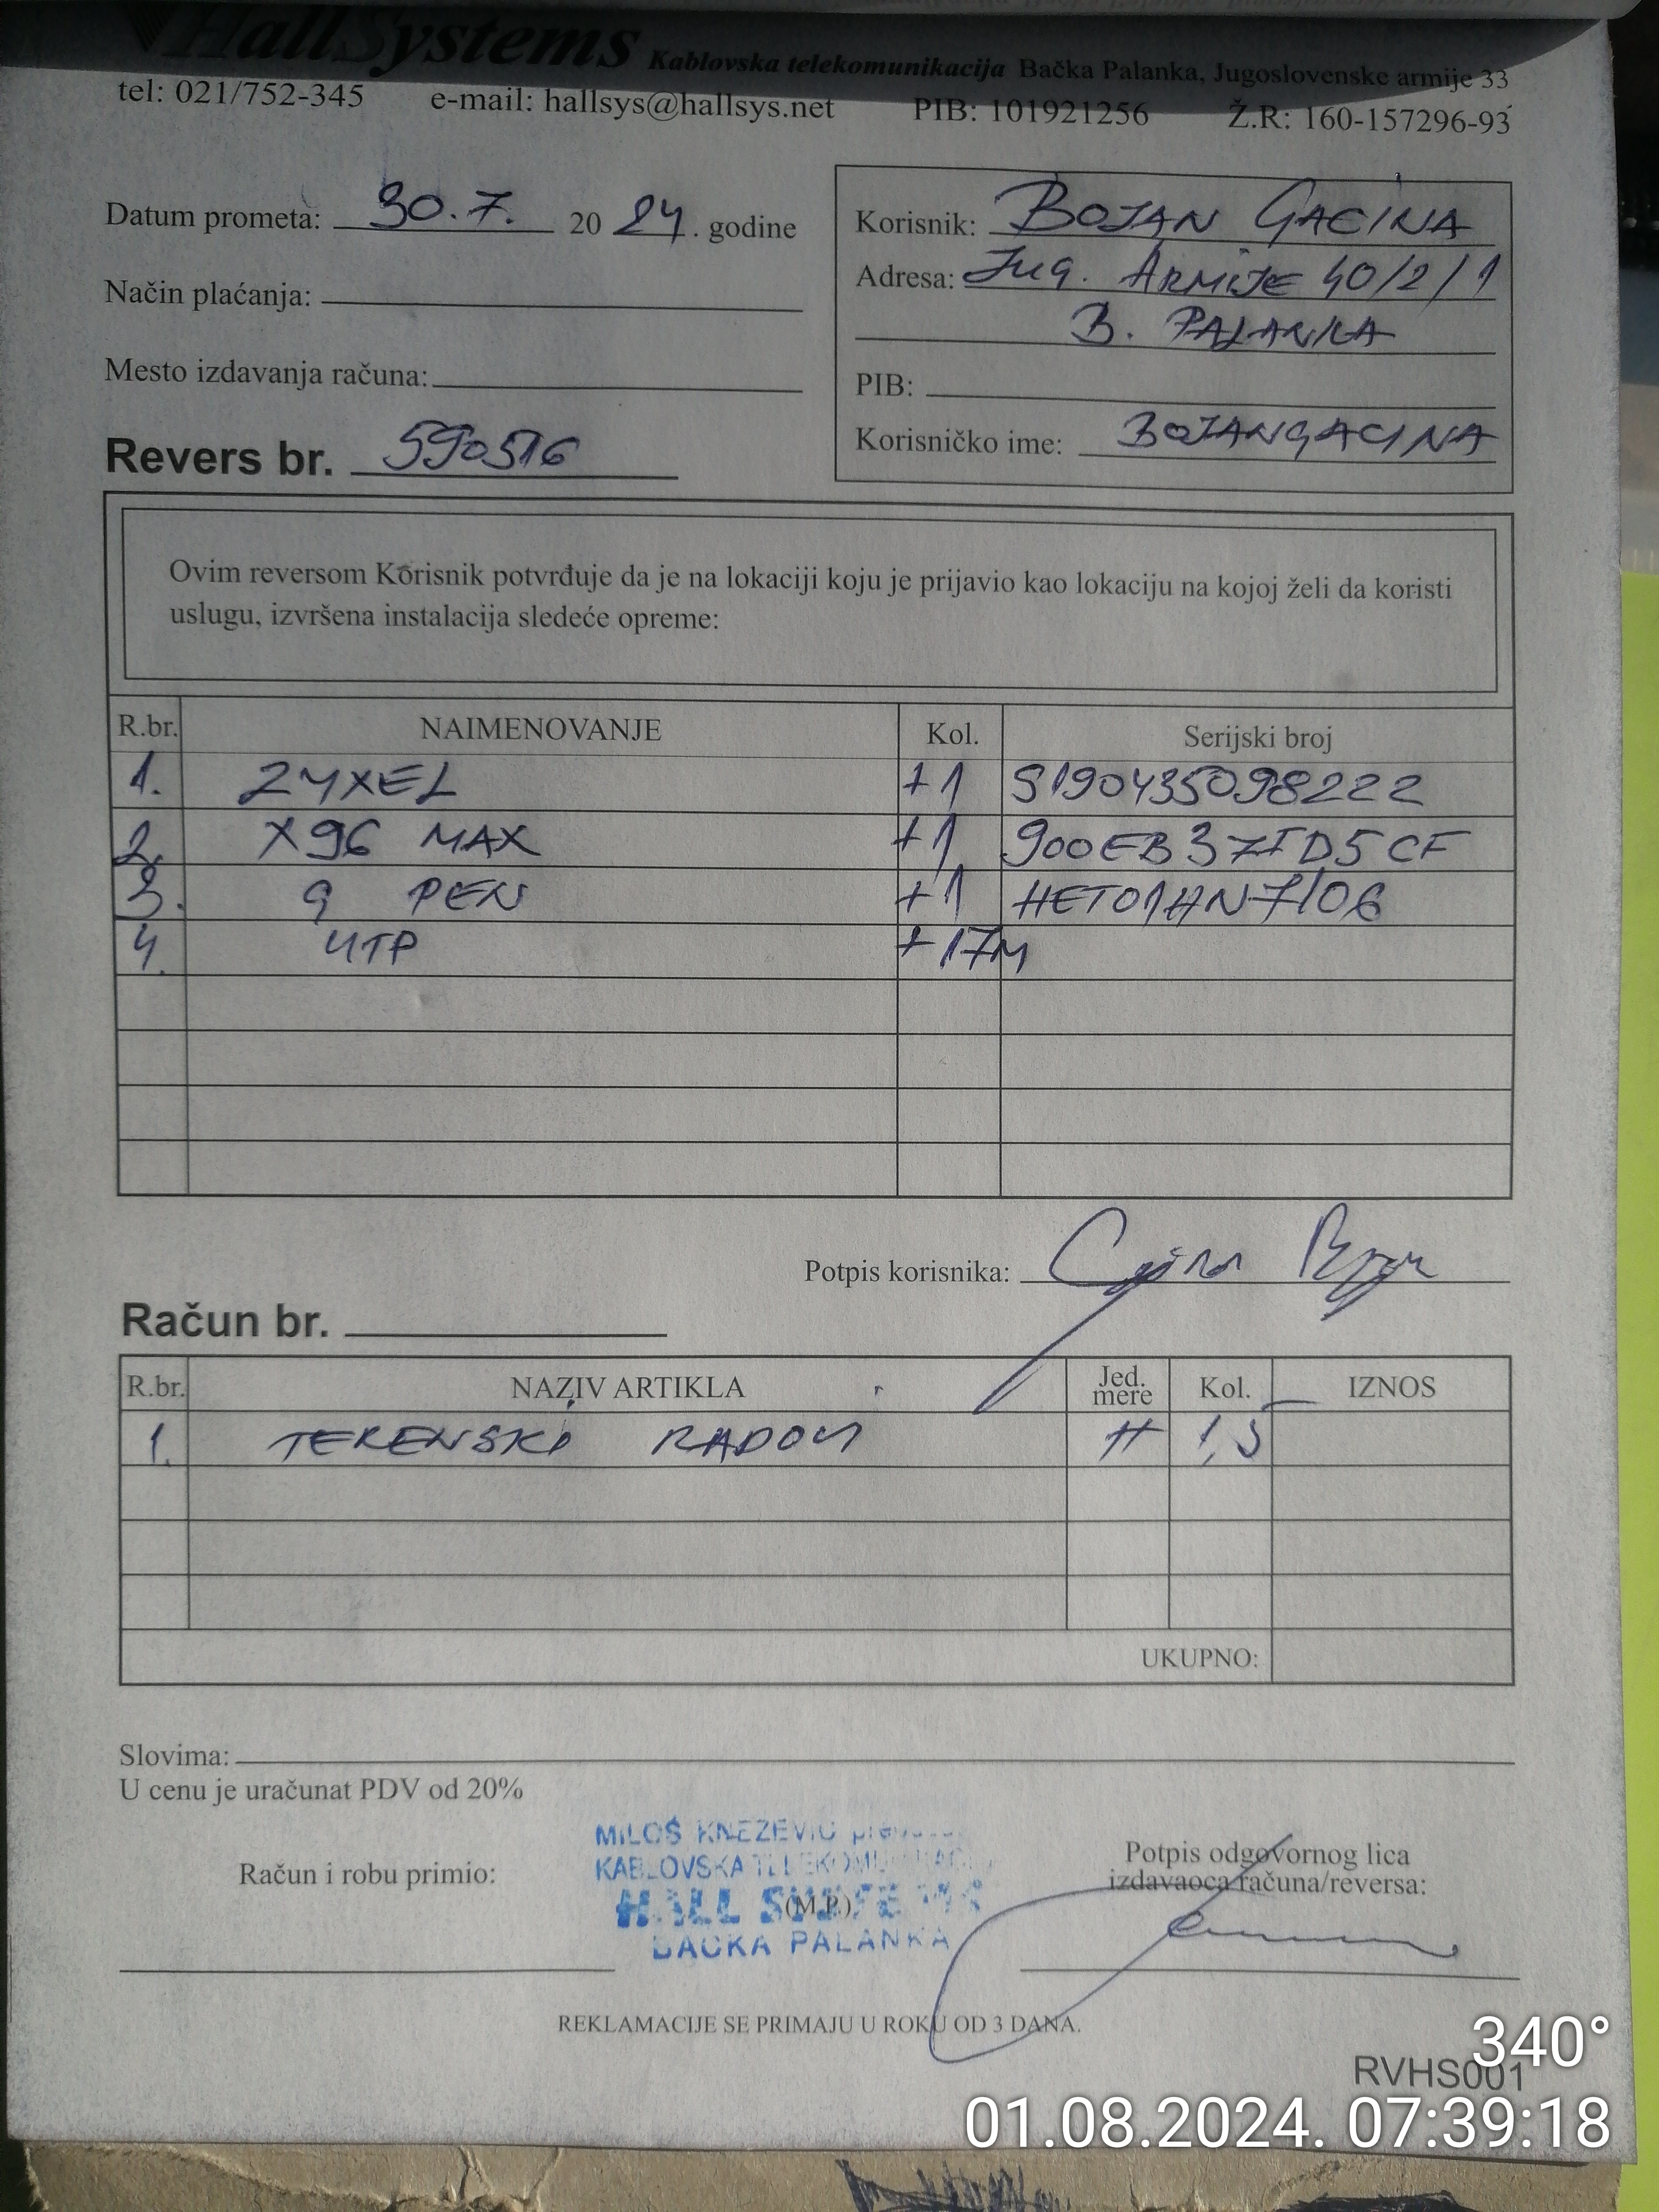 HallSystems Kablovska telekomunikacija Bačka Palanka, Jugoslovenske armije 33
tel: 021/752-345 e-mail: hallsys@hallsys.net PIB: 101921256 Ž.R: 160-157296-93
Datum prometa: 30.7. 2024. godine
Način plaćanja:
Mesto izdavanja računa:
Revers br. 590516
Korisnik: BOJAN GACINA
Adresa: Jug. ARMIJE 40/2/1
B. PALANKA
PIB:
Korisničko ime: BOJANGACINA
Ovim reversom Korisnik potvrđuje da je na lokaciji koju je prijavio kao lokaciju na kojoj želi da koristi
uslugu, izvršena instalacija sledeće opreme:
R.br. NAIMENOVANJE Kol. Serijski broj
1. ZYXEL +1 S190435098222
2. X96 MAX +1 900EB37FD5CF
3. 9 PEN +1 HET01HN7106
4. UTP +17M
Potpis korisnika:
Račun br.
R.br. NAZIV ARTIKLA Jed. mere Kol. IZNOS
1. TERENSKI RADOVI H 1,5
UKUPNO:
Slovima:
U cenu je uračunat PDV od 20%
MILOŠ KNEZEVIĆ
KABLOVSKA TELEKOMUNIKACIJA
HALL SYSTEMS
BAČKA PALANKA
Račun i robu primio:
(M.P.)
Potpis odgovornog lica
izdavaoca računa/reversa:
REKLAMACIJE SE PRIMAJU U ROKU OD 3 DANA.
RVHS001
340°
01.08.2024. 07:39:18